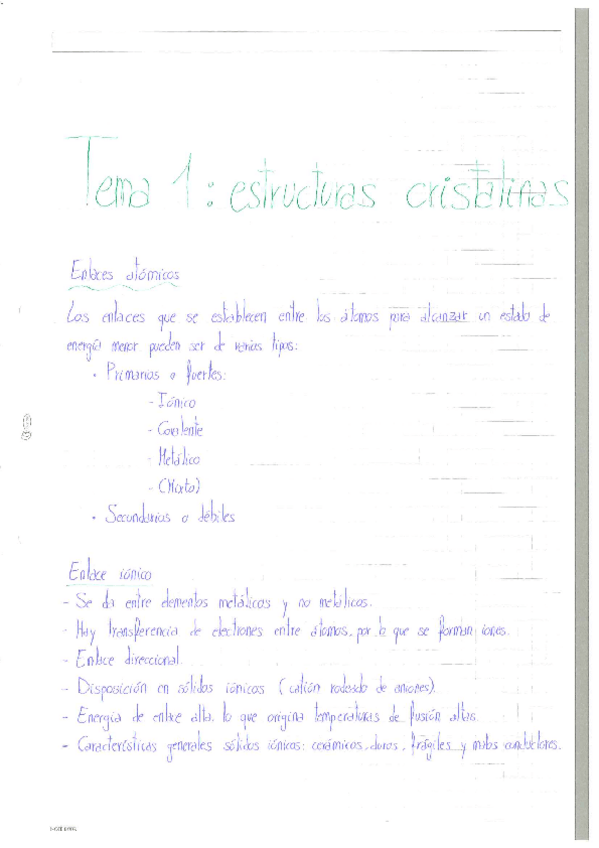 Tema 1: estructuras cristalinas
Enlaces atómicos
Los enlaces que se establecen entre los átomos para alcanzar un estado de
energía menor pueden ser de varios tipos:
· Primarios o fuertes:
- Iónico
- Covalente
- Metálico
- (Mixto)
· Secundarios o débiles
Enlace iónico
- Se da entre elementos metálicos y no metálicos.
- Hay transferencia de electrones entre átomos, por lo que se forman iones.
- Enlace direccional.
- Disposición en sólidos iónicos (catión rodeado de aniones).
- Energía de enlace alta, lo que origina temperaturas de fusión altas.
- Características generales sólidos iónicos: cerámicos, duros, frágiles y malos conductores.